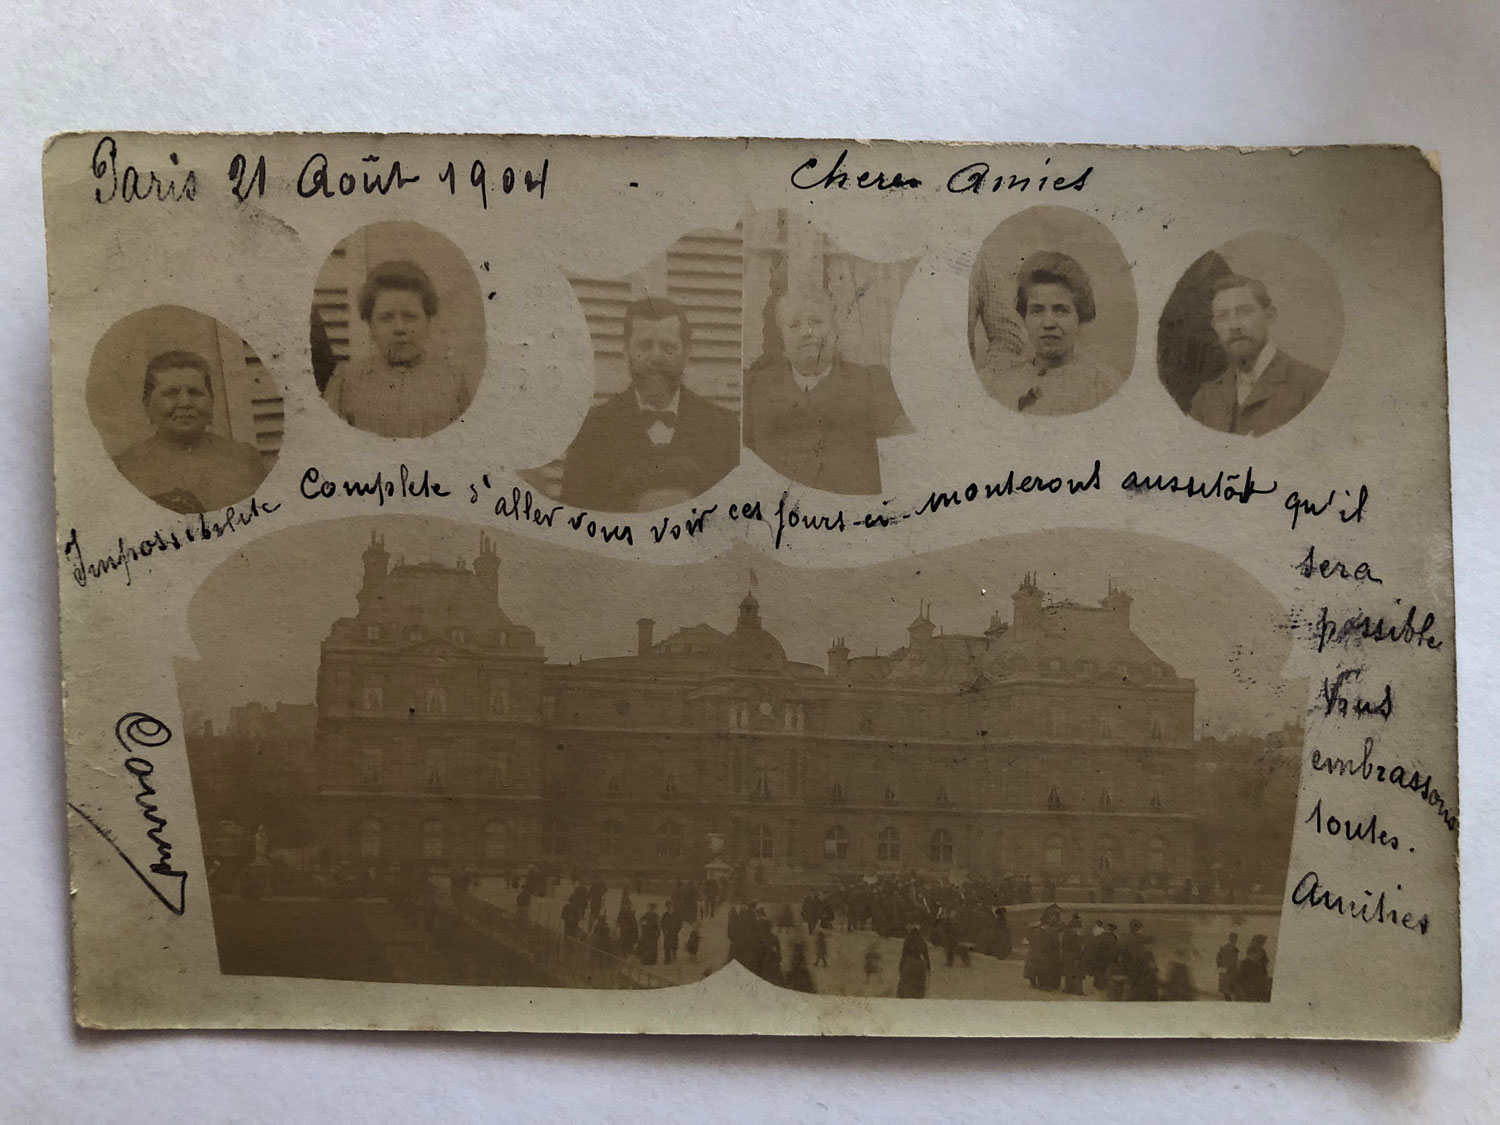 Paris 21 Août 1904 -
Cheres Amies
Impossibilite Complete d'aller vous voir ces jours-ci - monterons aussitôt qu'il
sera
possible
Vous
embrassons
toutes.
Amities